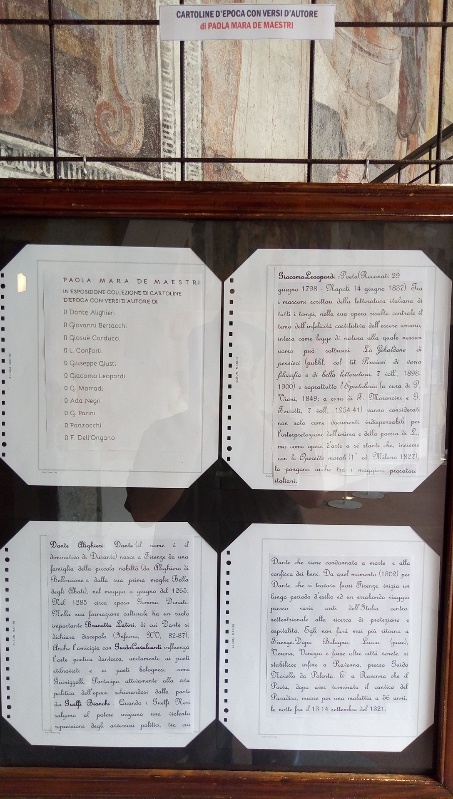 CARTOLINE D'EPOCA CON VERSI D'AUTORE
di PAOLA MARA DE MAESTRI
PAOLA MARA DE MAESTRI
IN ESPOSIZIONE COLLEZIONE DI CARTOLINE
D'EPOCA CON VERSI D'AUTORE DI
Dante Alighieri
Giovanni Bertacchi
Giosuè Carducci
L. Conforti
Giuseppe Giusti
Giacomo Leopardi
G. Marradi
Ada Negri
G. Parini
Panzacchi
F. Dell'Ongaro
Giacomo Leopardi (Poeta) Recanati 29
giugno 1798 - Napoli 14 giugno 1837) Tra
i massimi scrittori della letteratura italiana di
tutti i tempi, nella sua opera risulta centrale il
tema dell'infelicità costitutiva dell'essere umano,
intesa come legge di natura alla quale nessun
uomo può sottrarsi. Lo Zibaldone di
pensieri (pubbl. col tit. Pensieri di varia
filosofia e di bella letteratura, 7 voll., 1898-
1900) e soprattutto l'Epistolario (a cura di P.
Viani, 1849; a cura di F. Moroncini e G.
Ferretti, 7 voll., 1934-41) vanno considerati
non solo come documenti indispensabili per
l'interpretazione dell'anima e della poesia di L.,
ma come opere d'arte a sé stanti che, insieme
con le Operette morali (1ª ed. Milano 1827),
lo pongono anche tra i maggiori prosatori
italiani.
Dante Alighieri Dante (il nome è il
diminutivo di Durante) nasce a Firenze da una
famiglia della piccola nobiltà (da Alighiero di
Bellincione e dalla sua prima moglie Bella
degli Abati), nel maggio o giugno del 1265.
Nel 1285 circa sposa Gemma Donati.
Nella sua formazione culturale ha un ruolo
importante Brunetto Latini, di cui Dante si
dichiara discepolo (Inferno, XV, 82-87).
Anche l'amicizia con Guido Cavalcanti influenza
l'arte poetica dantesca, unitamente ai poeti
stilnovisti e ai poeti bolognesi come
Guinizzelli. Partecipa attivamente alla vita
politica dell'epoca schierandosi dalla parte
dei Guelfi Bianchi. Quando i Guelfi Neri
salgono al potere inizia una violenta
repressione degli avversari politici, tra cui
Dante che viene condannato a morte e alla
confisca dei beni. Da quel momento (1302) per
Dante che si trovava fuori Firenze inizia un
lungo periodo d'esilio ed un errabondo viaggio
presso varie corti dell'Italia centro
settentrionale alla ricerca di protezione e
ospitalità. Egli non farà mai più ritorno a
Firenze. Dopo Bologna, Lucca, Forlì,
Verona, Venezia e forse altre città venete si
stabilisce infine a Ravenna, presso Guido
Novello da Polenta. E' a Ravenna che il
Poeta, dopo aver terminato il cantico del
Paradiso, muore per una malattia a 56 anni,
la notte fra il 13-14 settembre del 1321.